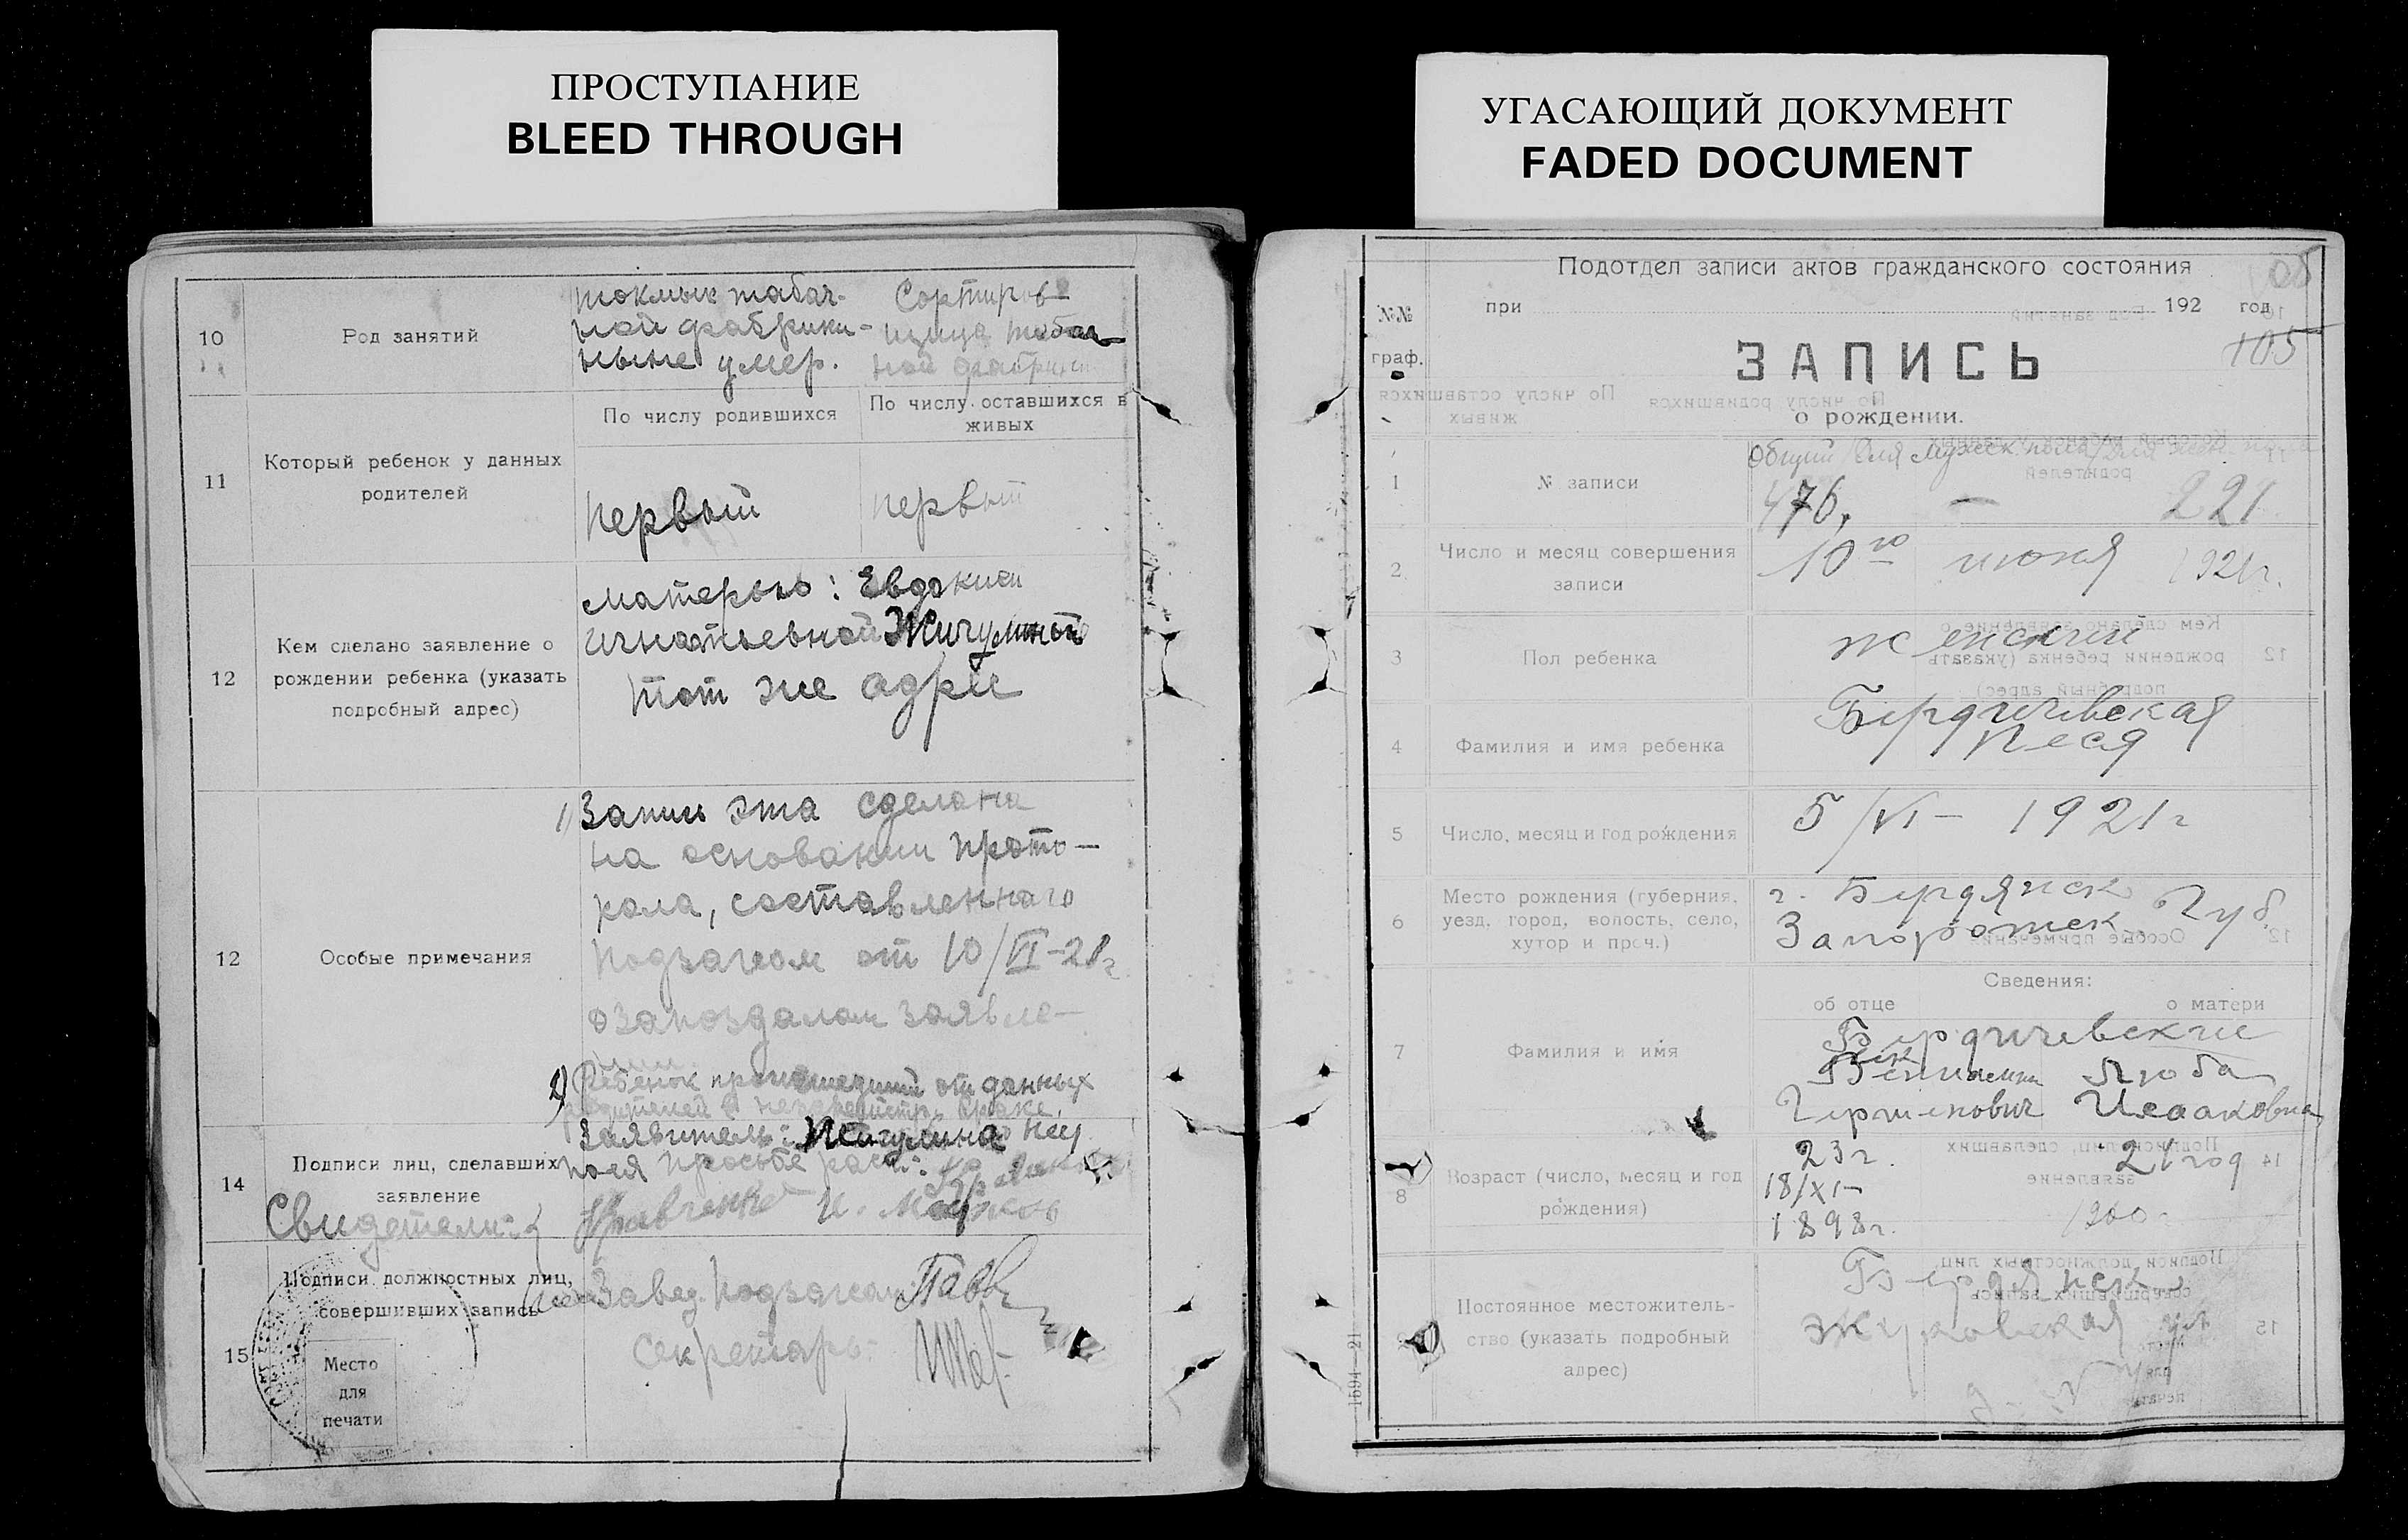 ПРОСТУПАНИЕ
BLEED THROUGH
10
Род занятий
табач-
ной фабрики-
ныне умер.
Сортиров-
щица табач
ной фабрики
11
Который ребенок у данных
родителей
По числу родившихся
По числу оставшихся в
живых
первый
первый
12
Кем сделано заявление о
рождении ребенка (указать
подробный адрес)
матерью: Евдокией
Игнатьевной Жигулиной
тот же адрес
12
Особые примечания
1) Запись эта сделана
на основании прото-
кола, составленного
подзагсом от 10/VI-21г
о запоздалом заявле-
нии
2) Ребенок происшедший от данных
родителей в незарегистр. браке.
14
Подписи лиц, сделавших
заявление
Заявитель: Жигулина
просьбе
Свидетели:
Кравченко И.
15
Подписи должностных лиц,
совершивших запись
Завед. Подзагсом
Секретарь:
Место
для
печати
УГАСАЮЩИЙ ДОКУМЕНТ
FADED DOCUMENT
Подотдел записи актов гражданского состояния
№№
граф.
при 192 год
105
ЗАПИСЬ
о рождении.
1
№ записи
Общий Для мужск. пола Для жен. пола
476. — 221
2
Число и месяц совершения
записи
10го июня 1921г.
3
Пол ребенка
женский
4
Фамилия и имя ребенка
Бердичевская
Песя
5
Число, месяц и год рождения
5/VI- 1921г
6
Место рождения (губерния,
уезд, город, волость, село,
хутор и проч.)
г. Бердянск
Запорожск Губ.
7
Фамилия и имя
Сведения:
об отце
о матери
Бердичевские
Люба
Исааковна
8
Возраст (число, месяц и год
рождения)
23г.
18/XI-
1898г.
21 год
1900
Постоянное местожитель-
ство (указать подробный
адрес)
Бердянск
Жуковская
1594—21